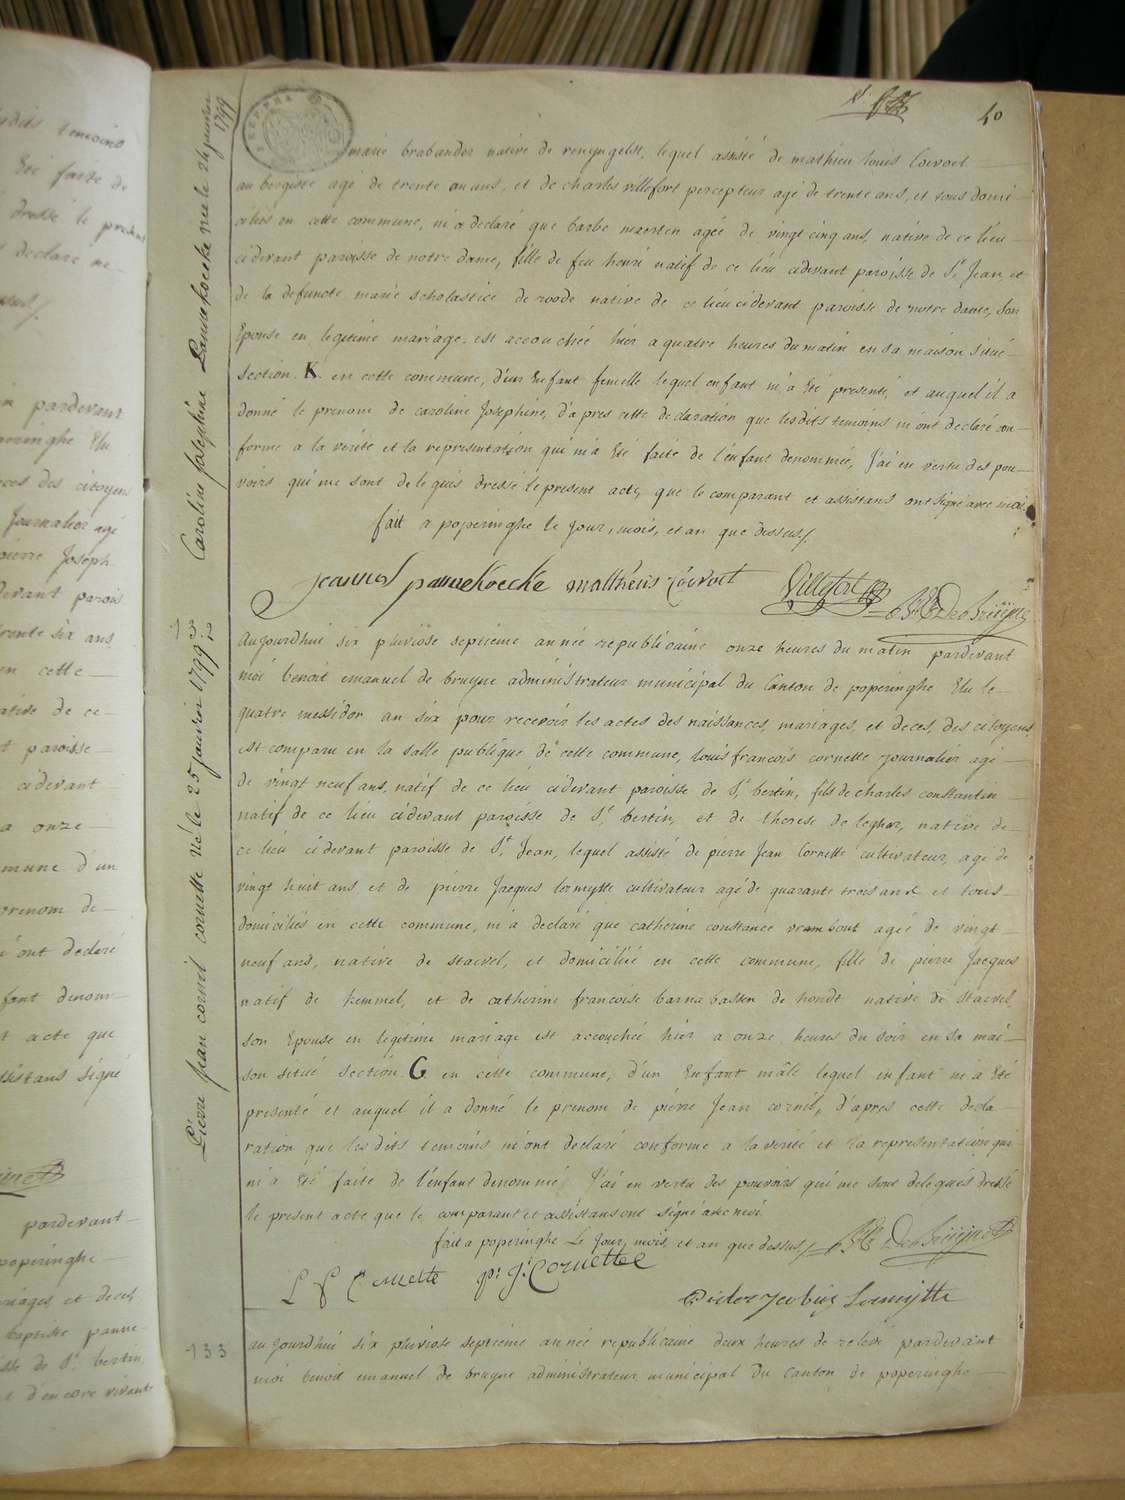 40
marie brabander native de renyngelst, lequel assisté de mathieu louis Coevoet
aubergiste agé de trente un ans, et de charles villefort percepteur agé de trente ans, et tous domi-
ciliés en cette commune, m'a declaré que barbe maerten agée de vingt cinq ans, native de ce lieu
cidevant paroisse de notre dame, fille de feu henri natif de ce lieu cidevant paroisse de St Jean, et
de la defuncte marie scholastice de roode native de ce lieu cidevant paroisse de notre dame, son
Epouse en legitime mariage, est accouchée hier a quatre heures du matin en sa maison situé
section. K. en cette commune, d'un Enfant femelle lequel enfant m'a Eté presenté, et auquel il a
donné le prenom de caroline Josephine, d'apres cette declaration que lesdits temoins m'ont declaré con-
forme a la verité et la representation qui m'a Eté faite de l'enfant denommée, J'ai en vertu des pou-
voirs qui me sont delegués dressé le present acte, que le comparant et assistans ont signé avec moi.
fait a poperinghe le jour, mois, et an que dessus/.
Joannes pannekoecke mattheus Coevoet Villefort B.E. De Bruÿne
Caroline Josephine Pannekoecke née le 24 janvier
1799
132
aujourdhui six pluviôse septieme année republicaine onze heures du matin pardevant
moi benoit emanuel de bruyne administrateur municipal du Canton de poperinghe Elu le
quatre messidor an six pour recevoir les actes des naissances, mariages, et deces, des citoyens
est comparu en la salle publique de cette commune, louis francois cornette journalier agé
de vingt neuf ans, natif de ce lieu cidevant paroisse de St bertin, fils de charles constantin
natif de ce lieu cidevant paroisse de St bertin, et de therese de legher, native de
ce lieu cidevant paroisse de St Jean, lequel assisté de pierre Jean Cornette cultivateur, agé de
vingt huit ans, et de pierre Jacques lermytte cultivateur agé de quarante trois ans et tous
domiciliés en cette commune, m'a declaré que catherine constance agée de vingt
neuf ans, native de stavel, et domiciliée en cette commune, fille de pierre Jacques
natif de kemmel, et de catherine francoise barnabassen de hondt native de stavel,
son Epouse en legitime mariage est accouchée hier a onze heures du soir en sa mai-
son situé section. G en cette commune, d'un Enfant mâle lequel enfant m'a Eté
presenté et auquel il a donné le prenom de pierre Jean cornil, d'apres cette decla-
ration que lesdits temoins m'ont declaré conforme a la verité et la representation qui
m'a Eté faite de l'enfant denommé J'ai en vertu des pouvoirs qui me sont delegués dressé
le present acte que le comparant et assistans ont signé avec moi.
fait a poperinghe Le Jour, mois, et an que dessus/. B.E. De Bruÿne
L F Cornette p: j: Cornette
Pieter Jacobus Lermijtte
Pierre Jean cornil cornette Né le 25 janvier 1799
133
aujourdhui six pluviose septieme année republicaine deux heures de relevé pardevant
moi benoit emanuel de bruyne administrateur municipal du Canton de poperinghe